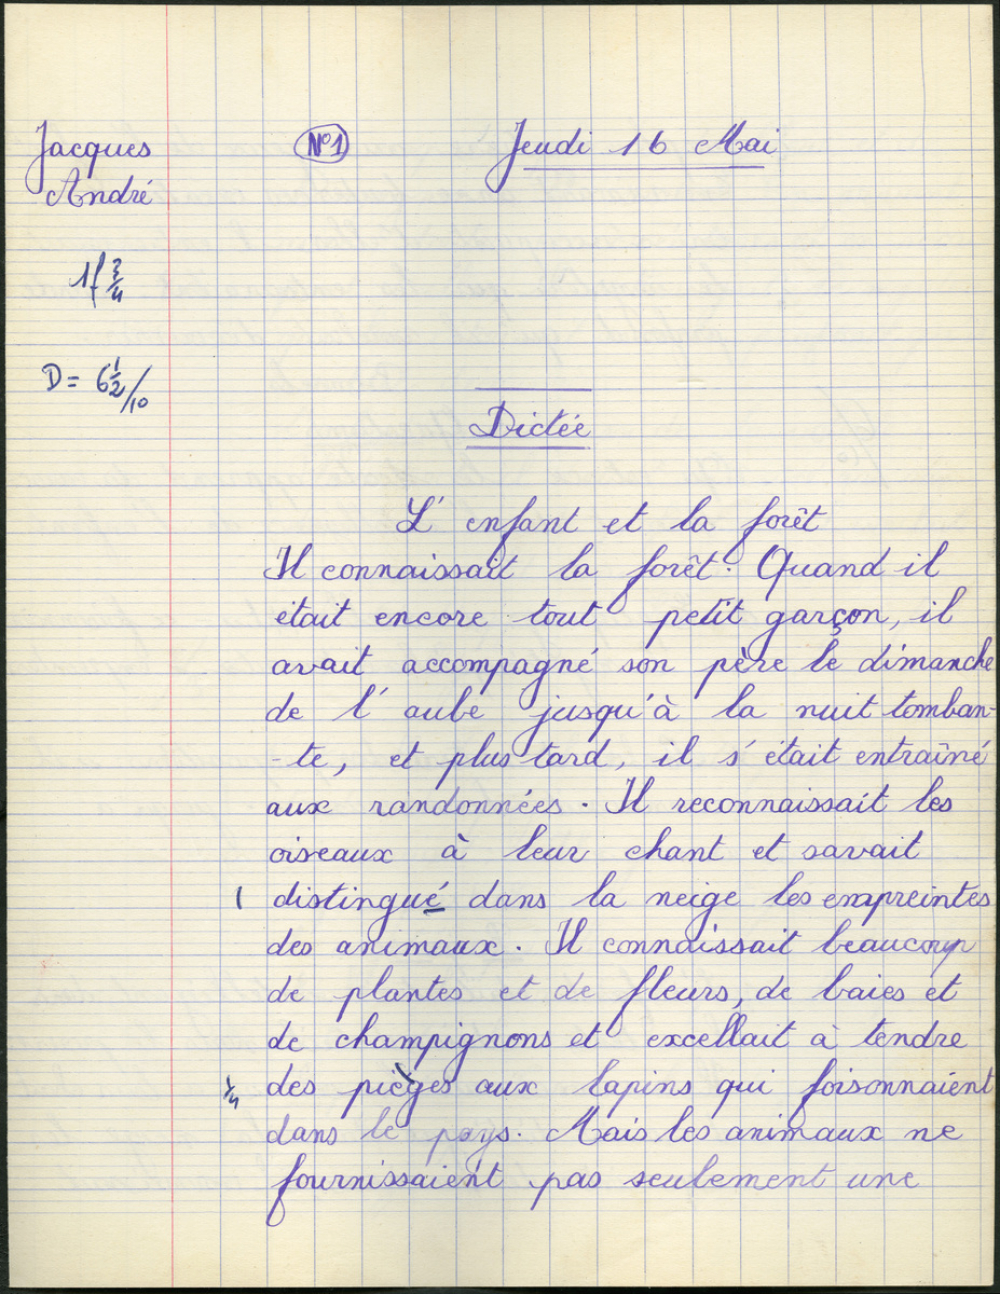 Jacques
André
N°1
Jeudi 16 Mai
1f 3/4
D = 6 1/2 /10
Dictée
L'enfant et la forêt
Il connaissait la forêt. Quand il
était encore tout petit garçon, il
avait accompagné son père le dimanche
de l'aube jusqu'à la nuit tomban-
-te, et plus tard, il s'était entraîné
aux randonnées. Il reconnaissait les
oiseaux à leur chant et savait
1 distingué dans la neige les empreintes
des animaux. Il connaissait beaucoup
de plantes et de fleurs, de baies et
de champignons et excellait à tendre
1/4 des pièges aux lapins qui foisonnaient
dans le pays. Mais les animaux ne
fournissaient pas seulement une